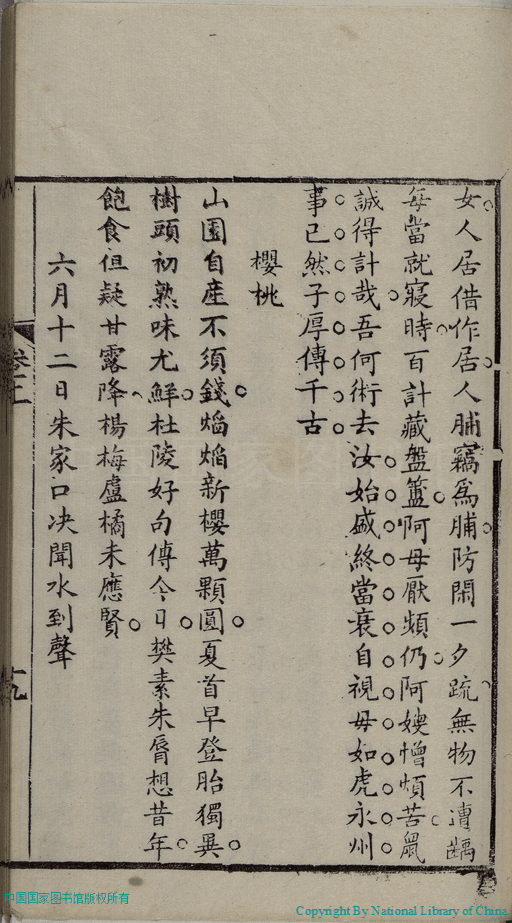 女人居借作居人脯竊為脯防閑一夕疏無物不遭齲
每當就寢時百計藏盤簋阿母厭頻仍阿嫂憎煩苦鼠
誠得計哉吾何術去汝始盛終當衰自視毋如虎永州
事已然子厚傳千古
櫻桃
山園自產不須錢熖熖新櫻萬顆圓夏首早登胎獨異
樹頭初熟味尤鮮杜陵好句傳今日樊素朱脣想昔年
飽食但疑甘露降楊梅盧橘未應賢
六月十二日朱家口决聞水到聲
卷十二
九
中国国家图书馆版权所有
Copyright By National Library of China